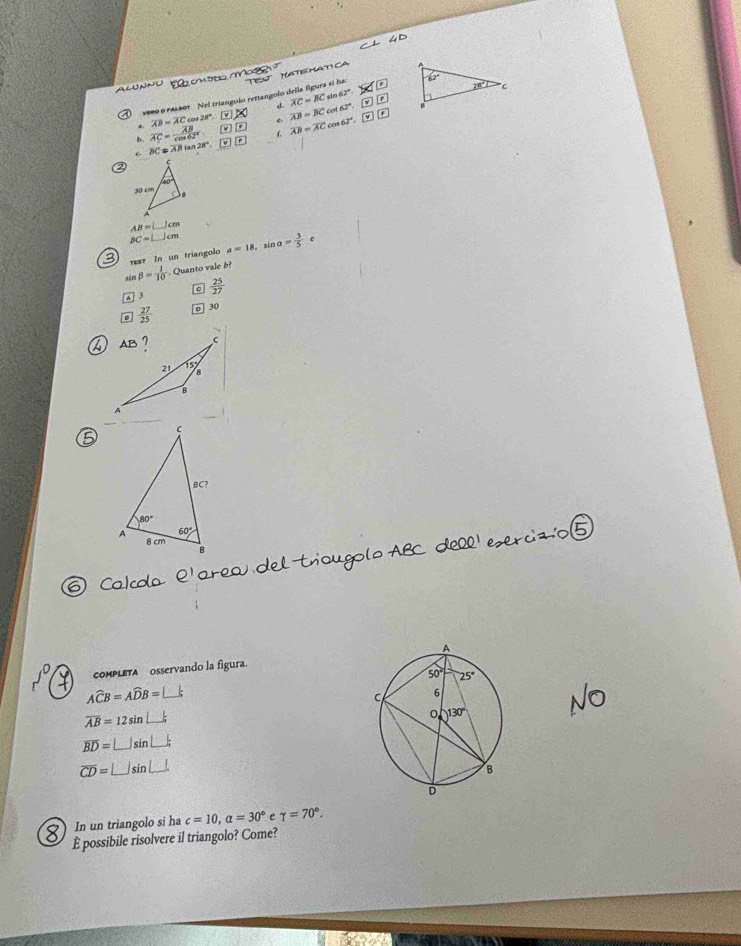 CL 4D
ALUNNO
TEST MATEMATICA
1 VERO O FALSO? Nel triangolo rettangolo della figura si ha:
a. AB = AC cos 28°. V F
b. AC = AB / cos 62°. V F
c. BC ≅ AB tan 28°. V F
d. AC = BC sin 62°. V F
e. AB = BC cot 62°. V F
f. AB = AC cos 62°. V F
A
62°
28°
C
B
2
C
40°
30 cm
B
A
AB = cm
BC = cm
3 TEST In un triangolo a = 18, sin α = 3/5 e
sin β = 1/10. Quanto vale b?
A 3
C 25/27
B 27/25
D 30
4 AB?
C
21
15°
B
B
A
5
C
BC?
80°
A
60°
8 cm
B
6 Calcola l'area del triangolo ABC dell'esercizio 5
NO 7 COMPLETA osservando la figura.
AĈB = AD̂B = ;
AB = 12 sin ;
BD = sin ;
CD = sin .
A
50°
25°
C
6
O
130°
B
D
NO
8 In un triangolo si ha c = 10, α = 30° e γ = 70°.
È possibile risolvere il triangolo? Come?